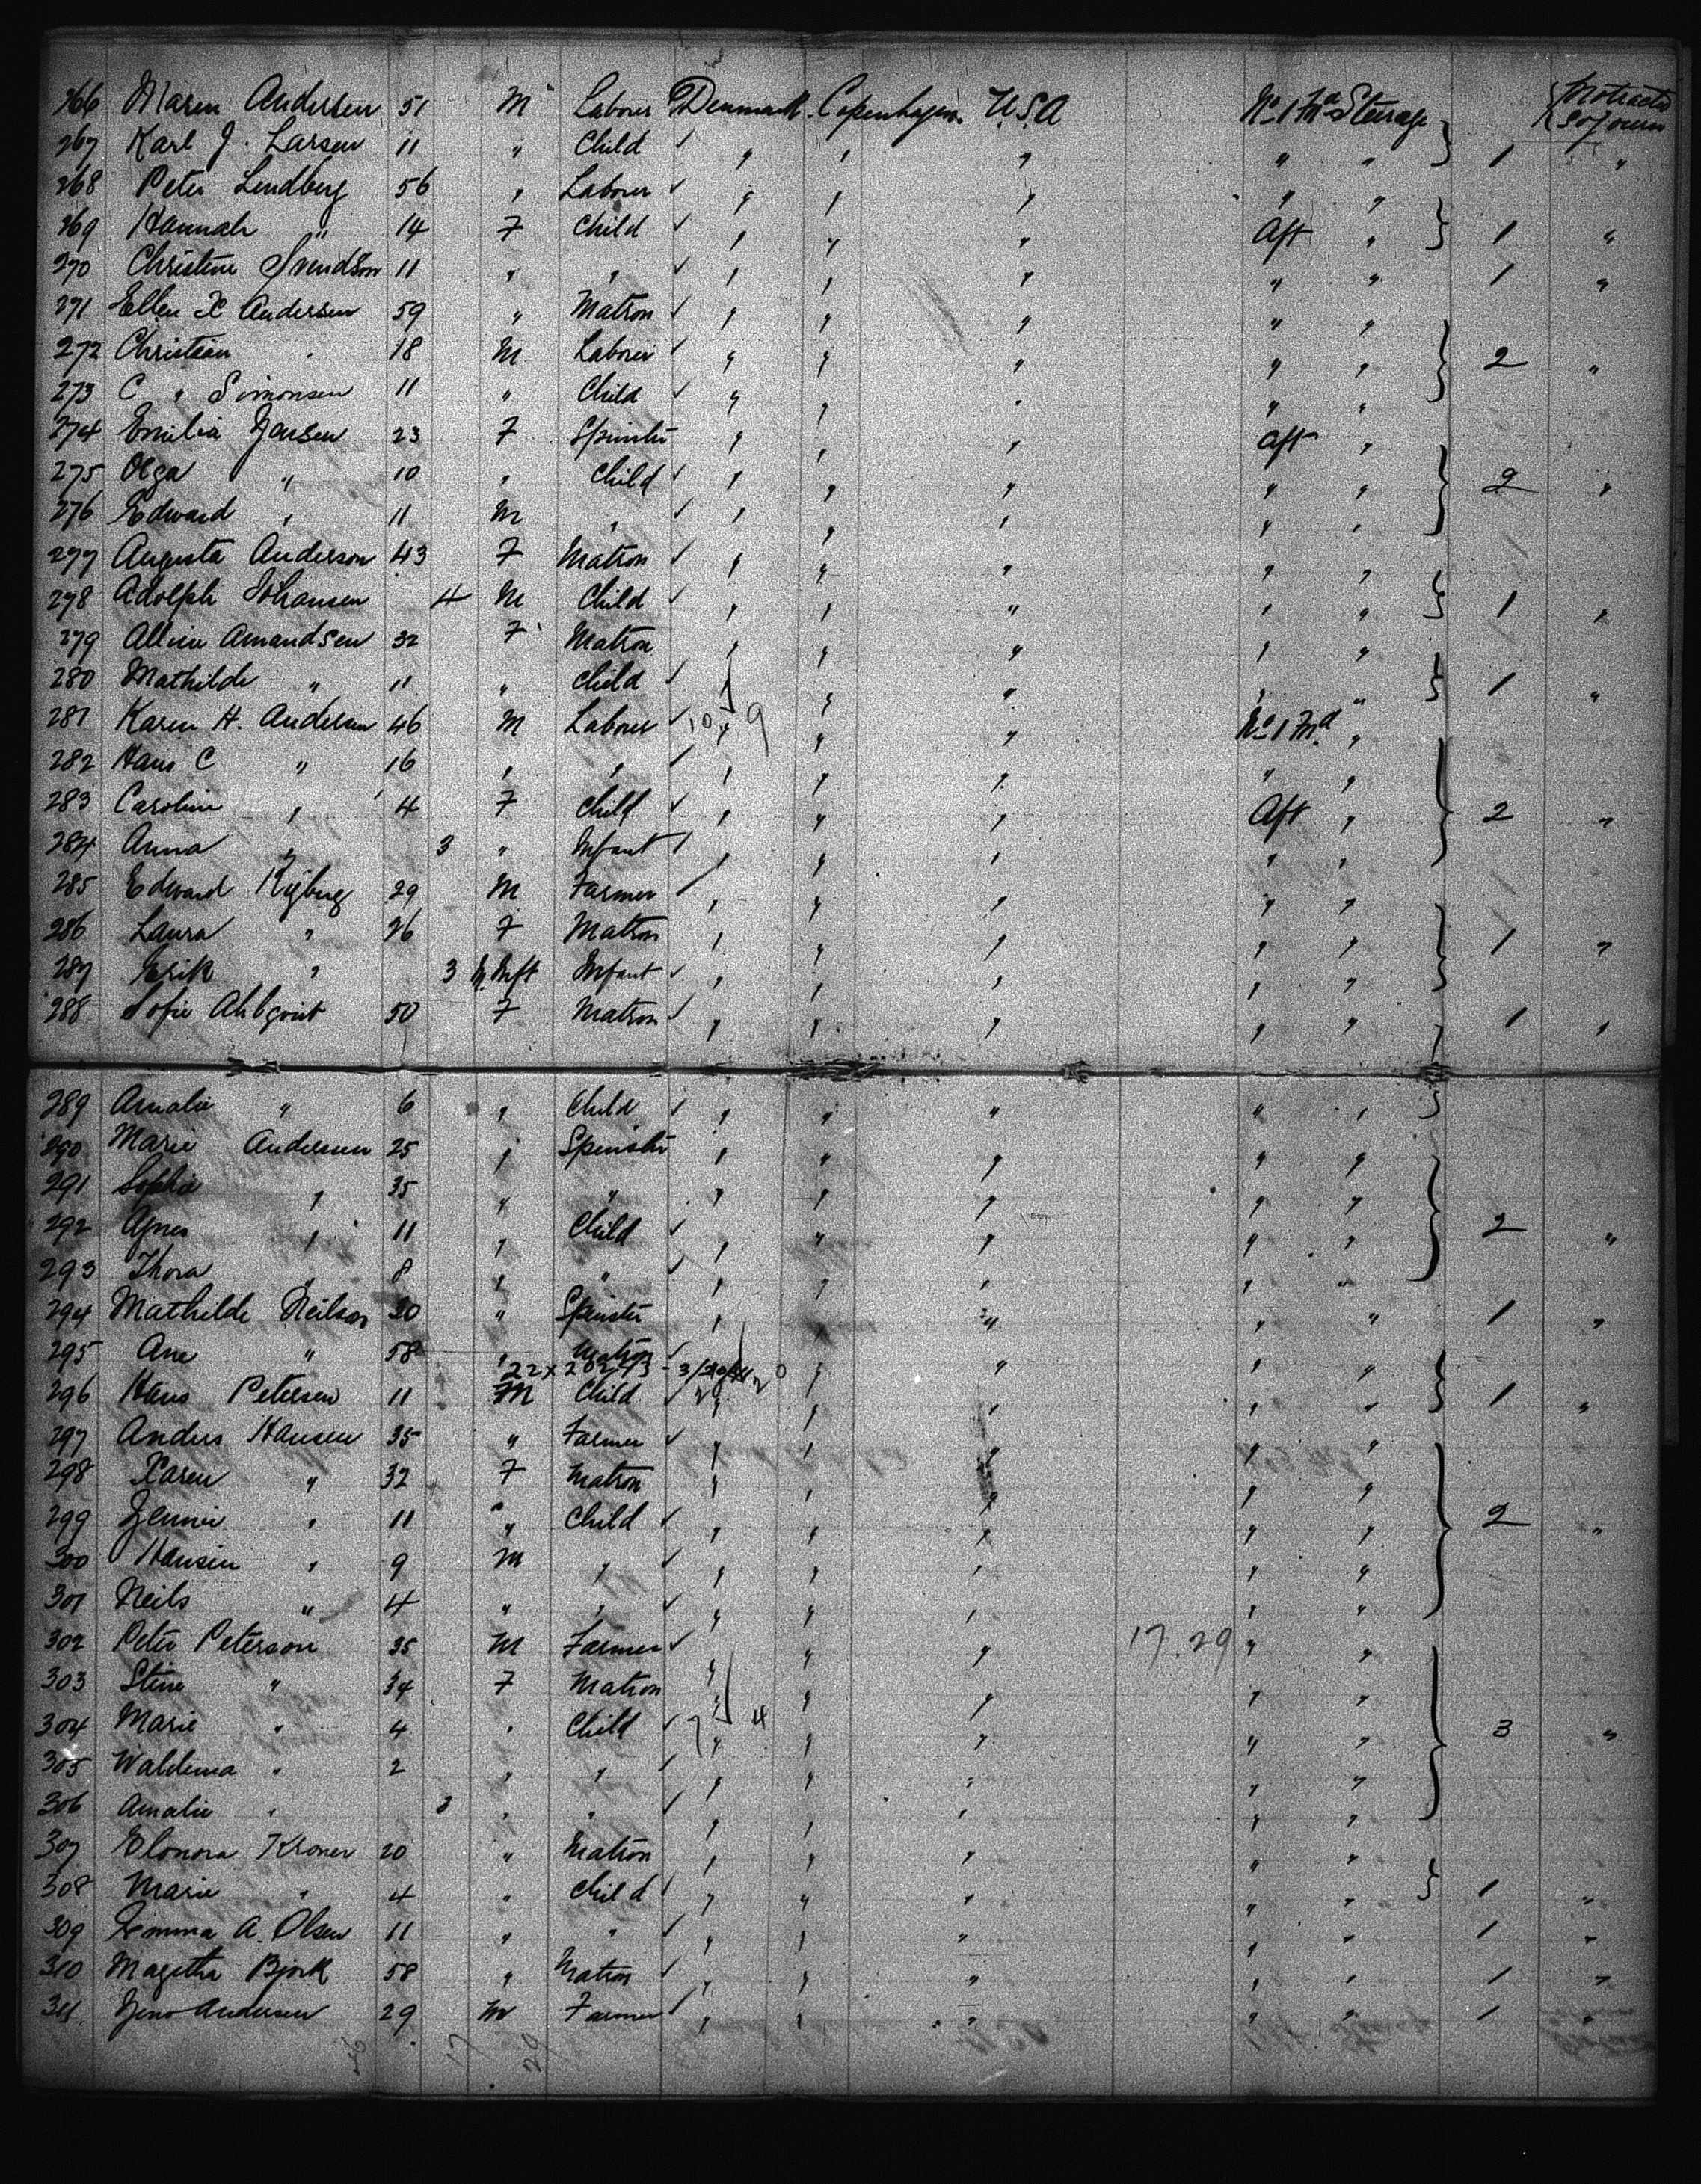 266 Maren Andersen 51 M Laborer Denmark Copenhagen U.S.A No 1 Md Steerage } Protracted Sojourn
267 Karl J. Larsen 11 " Child ✓ " " " " " 1 "
268 Peter Lindberg 56 " Laborer ✓ " " " " "
269 Hannah " 14 F Child ✓ " " " Aft " } 1 "
270 Christine Svendson 11 " " ✓ " " " " " 1 "
271 Ellen K Andersen 59 " Matron ✓ " " " " "
272 Christian " 18 M Laborer ✓ " " " " " } 2 "
273 C " Simonsen 11 " Child ✓ " " " " "
274 Emilia Jensen 23 F Spinster " " " Aft "
275 Olga " 10 " Child ✓ " " " " " } 2 "
276 Edward " 11 M " ✓ " " " " "
277 Augusta Anderson 43 F Matron ✓ " " " " "
278 Adolph Johansen 4 M Child ✓ " " " " " } 1 "
279 Alvin Amandsen 32 F Matron " " " " "
280 Mathilde " 11 " Child ✓ " " " " " } 1 "
281 Karen H. Andersen 46 M Laborer ✓ 10 9 " " " No 1 Md "
282 Hans C " 16 " " ✓ " " " " "
283 Caroline " 4 F Child ✓ " " " Aft " } 2 "
284 Anna " 3 " Infant " " " " "
285 Edward 29 M Farmer " " " " "
286 Laura " 26 F Matron " " " " " } 1 "
287 Erik " 3 M. Inft Infant ✓ " " " " "
288 Sofie Ahlqvist 50 F Matron ✓ " " " " " 1 "
289 Amalie " 6 " Child ✓ " " " " " }
290 Marie Andersen 25 " Spinster " " " " "
291 Sophie " 35 " " " " " " "
292 Agnes " 11 " Child ✓ " " " " " } 2 "
293 Thora " 8 " " ✓ " " " " "
294 Mathilde Neilson 30 " Spinster " " " " " 1 "
295 Ane " 58 " Matron ✓ " " " "
296 Hans Petersen 11 M Child ✓ " " " " " } 1 "
297 Anders Hansen 35 " Farmer ✓ " " " " "
298 Karen " 32 F Matron " " " " "
299 Jennie " 11 " Child ✓ " " " " " } 2 "
300 Hansin " 9 M " ✓ " " " " "
301 Neils " 4 " " ✓ " " " " "
302 Peter Peterson 35 M Farmer ✓ " " " 17.29 " "
303 Stine " 34 F Matron " " " " "
304 Marie " 4 " Child ✓ 7 4 " " " " " } 3 "
305 Waldema " 2 " " ✓ " " " " "
306 Amalie " 3 " " ✓ " " " " "
307 Elonora Kroner 20 " Matron " " " " "
308 Marie " 4 " Child ✓ " " " " " } 1 "
309 Emma A. Olsen 11 " " ✓ " " " " " 1 "
310 Magetha Bjork 58 " Matron ✓ " " " " " 1 "
311 Jens Andersen 29 M Farmer ✓ " " " " " 1 "
17 29